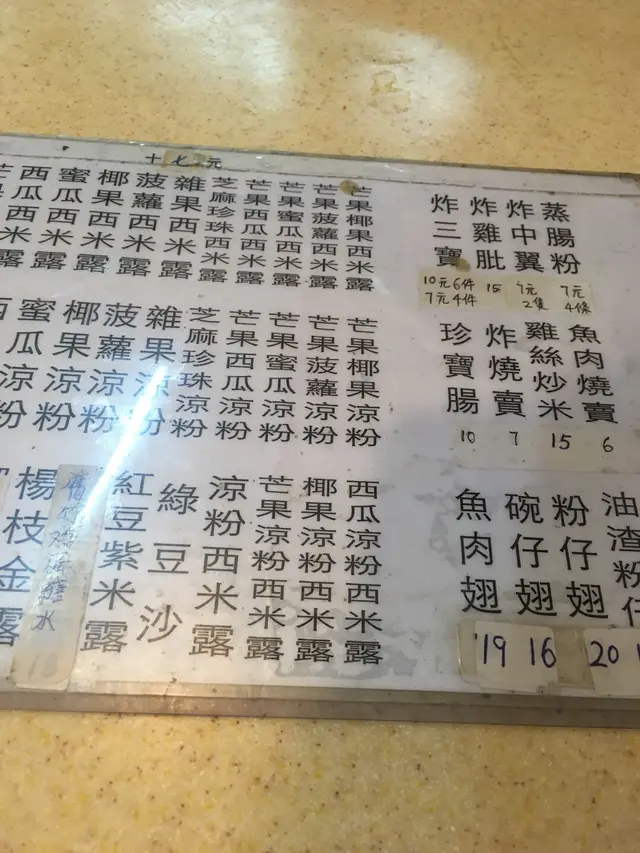 十七元
蒸腸粉
7元4條
炸中翼
7元2隻
炸雞肶
15
炸三寶
10元6件
7元4件
魚肉燒賣
6
雞絲炒米
15
炸燒賣
7
珍寶腸
10
油渣粉仔
粉仔翅
20
碗仔翅
16
魚肉翅
19
芒果椰果西米露
芒果菠蘿西米露
芒果蜜瓜西米露
芒果西瓜西米露
芝麻珍珠西米露
雜果西米露
菠蘿西米露
椰果西米露
蜜瓜西米露
西瓜西米露
芒果椰果涼粉
芒果菠蘿涼粉
芒果蜜瓜涼粉
芒果西瓜涼粉
芝麻珍珠涼粉
雜果涼粉
菠蘿涼粉
椰果涼粉
蜜瓜涼粉
西瓜涼粉
西瓜涼粉西米露
椰果涼粉西米露
芒果涼粉西米露
涼粉西米露
綠豆沙
紅豆紫米露
腐竹鸡蛋糖水
18
楊枝金露